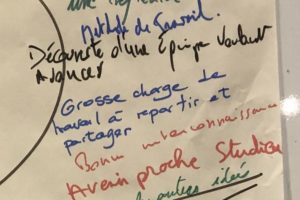 une
Méthode de travail.
Découverte d'une Équipe voulant
avancer
Grosse charge de
travail à repartir et
partager
Bonne interconnaissance
Avenir proche Studieux
autres idées